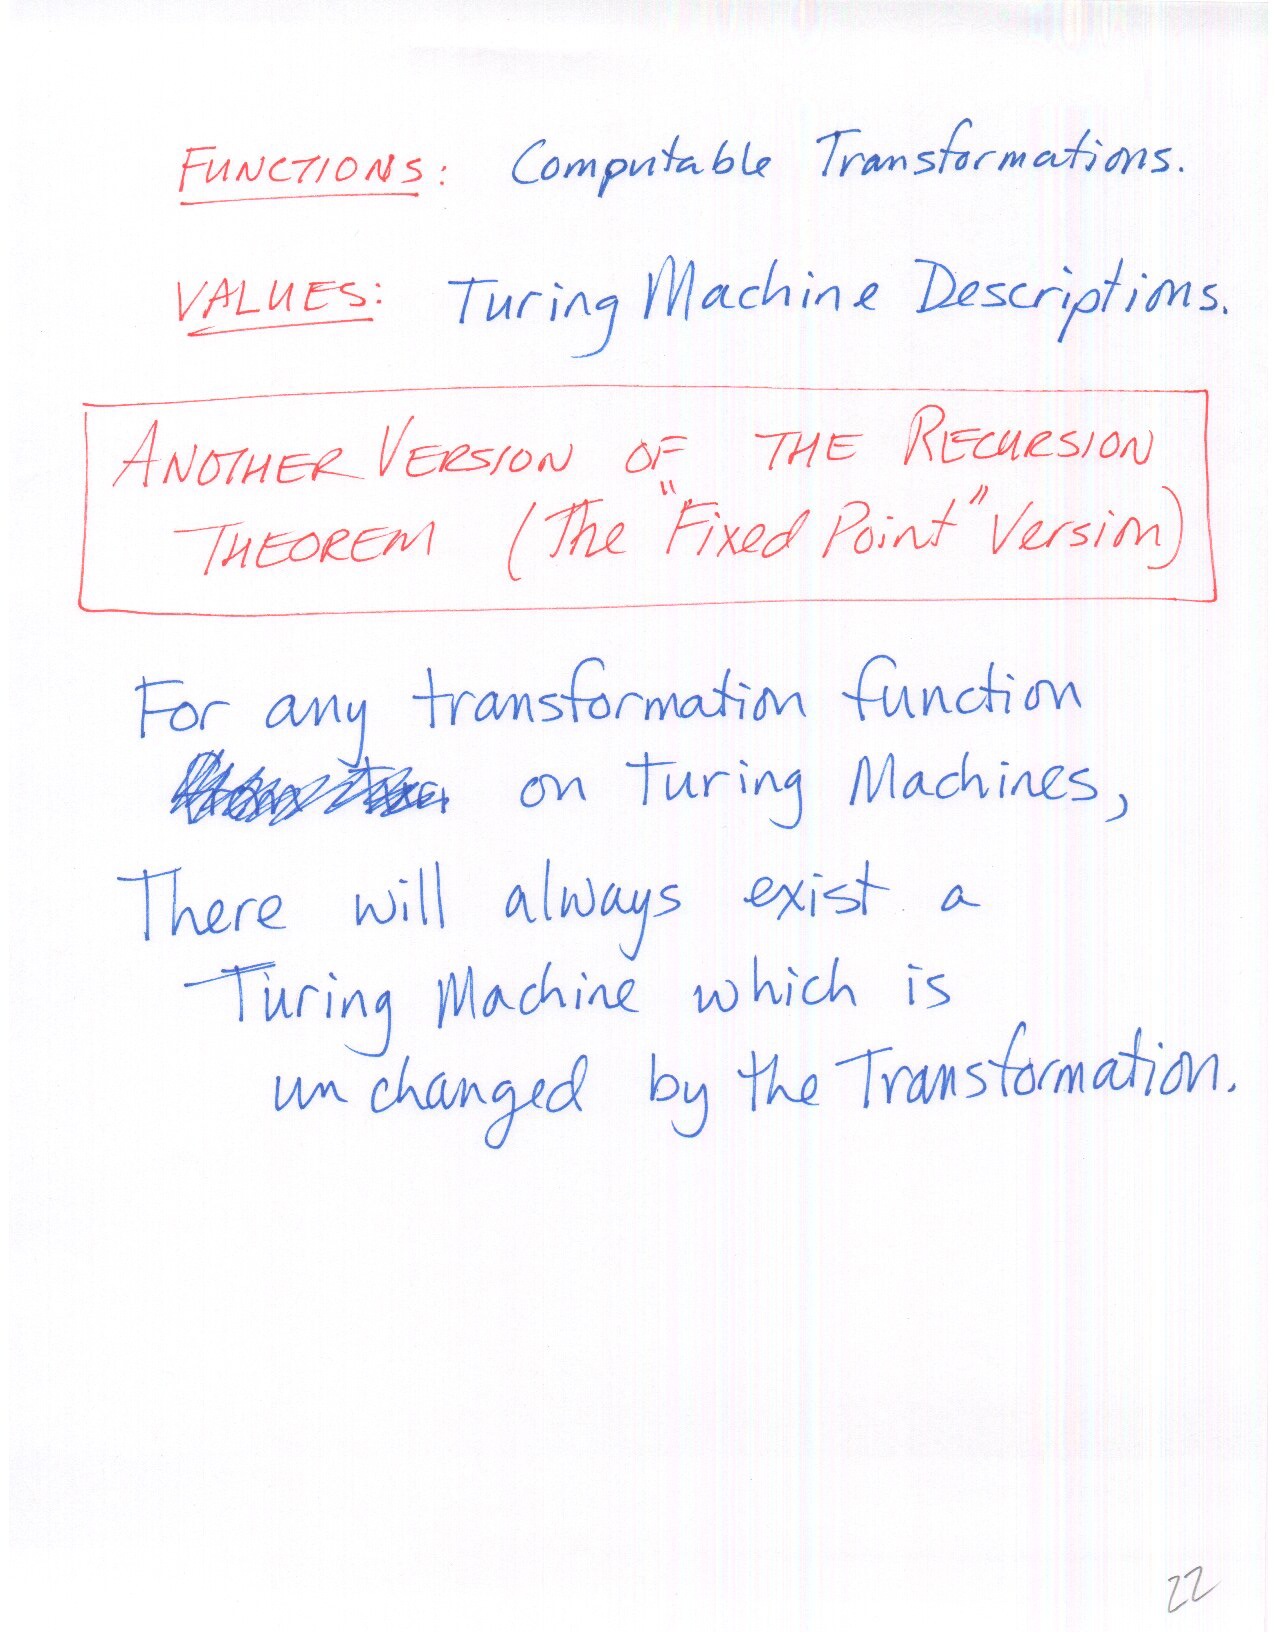 FUNCTIONS: Computable Transformations.
VALUES: Turing Machine Descriptions.
ANOTHER VERSION OF THE RECURSION
THEOREM (The "Fixed Point" Version)
For any transformation function
on Turing Machines,
There will always exist a
Turing Machine which is
unchanged by the Transformation.
22